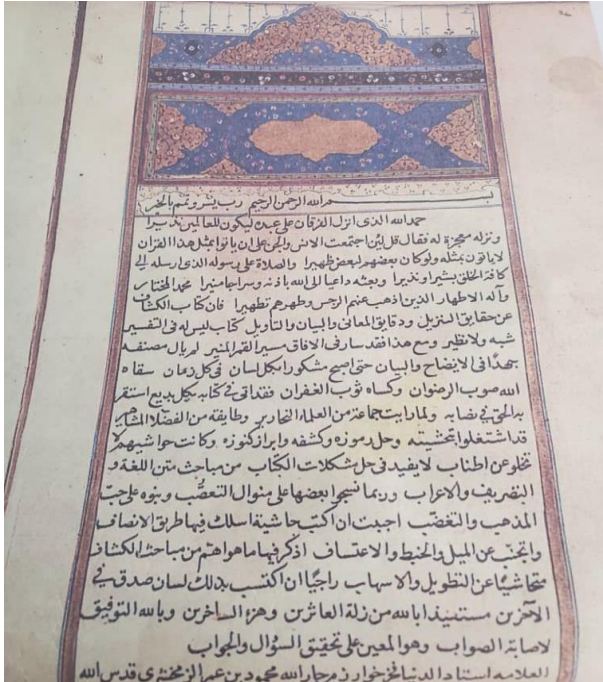 بسم الله الرحمن الرحيم رب يسر وتمم بالخير
حمد الله الذى انزل الفرقان على عبده ليكون للعالمين نذيرا
ونزله معجزة له فقال قل لئن اجتمعت الانس والجن على ان ياتوا بمثل هذا القران
لا ياتون بمثله ولو كان بعضهم لبعض ظهيرا والصلاة على رسوله الذى ارسله الى
كافة الخلق بشيرا ونذيرا وبعثه داعيا الى الله باذنه وسراجا منيرا محمد المختار
وآله الاطهار الذين اذهب عنهم الرجس وطهرهم تطهيرا فان كتاب الكشاف
عن حقايق التنزيل ودقايق المعانى والبيان والتأويل كتاب ليس له فى التفسير
شبه ولا نظير ومع هذا فقد سار فى الافاق مسير القمر المنير لم يال مصنفه
جهدا فى الايضاح والبيان حتى اصبح مشكورا بكل لسان فى كل زمان سقاه
الله صوب الرضوان وكساه ثوب الغفران فقد اتى فى كتابه بكل بديع استقر
به الحق فى نصابه ولما رايت جماعة من العلماء النحارير وطايفة من الفضلا المشاهير
قد اشتغلوا بتحشيته وحل رموزه وكشفه وابراز كنوزه وكانت حواشيهم لا
تخلو عن اطناب لا يفيد فى حل مشكلات الكتاب من مباحث متن اللغة و
التصريف والاعراب وربما نسجوا بعضها على منوال التعصب وبنوه على حب
المذهب والتغضب اجببت ان اكتب حاشية اسلك فيها طريق الانصاف
واتجنب عن الميل والخبط والاعتساف اذكر فيها ما هو اهم من مباحث الكشاف
متحاشيا عن التطويل والاسهاب راجيا ان اكتسب بذلك لسان صدق فى
الآخرين مستعيذا بالله من زلة العاثرين وهزء الساخرين وبالله التوفيق
لاصابة الصواب وهو المعين على تحقيق السؤال والجواب
العلامه استاد الدنيا فخر خوارزم جار الله محمود بن عمر الزمخشرى قدس الله